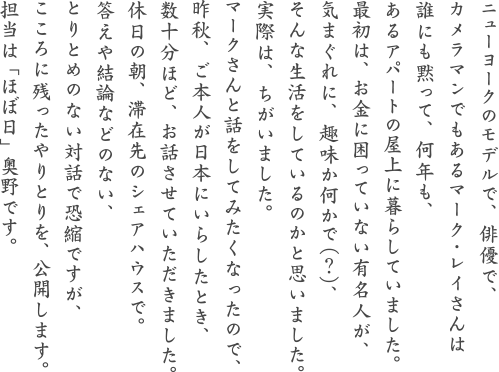 ニューヨークのモデルで、俳優で、
カメラマンでもあるマーク・レイさんは
誰にも黙って、何年も、
あるアパートの屋上に暮らしていました。
最初は、お金に困っていない有名人が、
気まぐれに、趣味か何かで(?)、
そんな生活をしているのかと思いました。
実際は、ちがいました。
マークさんと話をしてみたくなったので、
昨秋、ご本人が日本にいらしたとき、
数十分ほど、お話させていただきました。
休日の朝、滞在先のシェアハウスで。
答えや結論などのない、
とりとめのない対話で恐縮ですが、
こころに残ったやりとりを、公開します。
担当は「ほぼ日」奥野です。